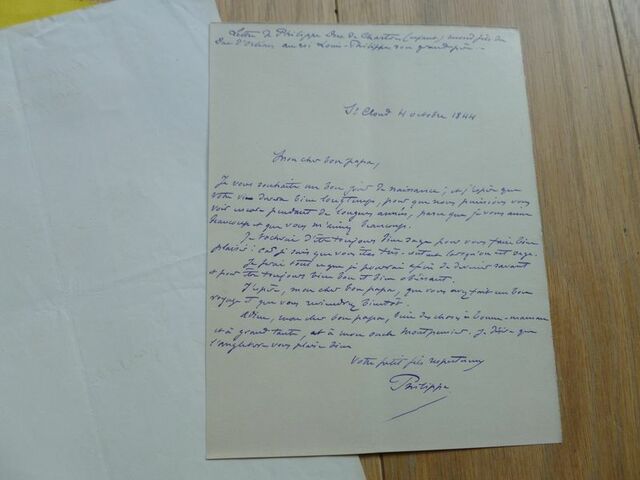 Lettre de Philippe Duc de Chartres (enfant) second fils du
Duc d'Orléans au roi Louis-Philippe son grand-père. -
St Cloud 4 octobre 1844
Mon cher bon papa,
Je vous souhaite un bon jour de naissance ; et j'espère que
votre vie durera bien longtemps, pour que nous puissions vous
voir encore pendant de longues années, parce que je vous aime
beaucoup et que vous m'aimez beaucoup.
Je tâcherai d'être toujours bien sage pour vous faire bien
plaisir : car je sais que vous êtes très content lorsqu'on est sage.
Je ferai tout ce que je pourrai afin de devenir savant
et pour être toujours bien bon et bien obéissant.
J'espère, mon cher bon papa, que vous avez fait un bon
voyage et que vous reviendrez bientôt.
Adieu, mon cher bon papa, bien des choses à bonne-maman
et à grand tante, et à mon oncle Montpensier. Je désire que
l'angleterre vous plaise bien
Votre petit fils respectueux
Philippe